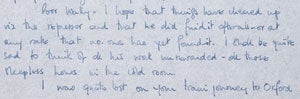 Poor Wally. I hope that things have cleared up
via the                and that he did find it after all – or at
any rate that no one has yet found it. I shd. be quite
sad to think of all his work                – all those
sleepless hours in the cold room.
I was quite lost on your train journey to Oxford